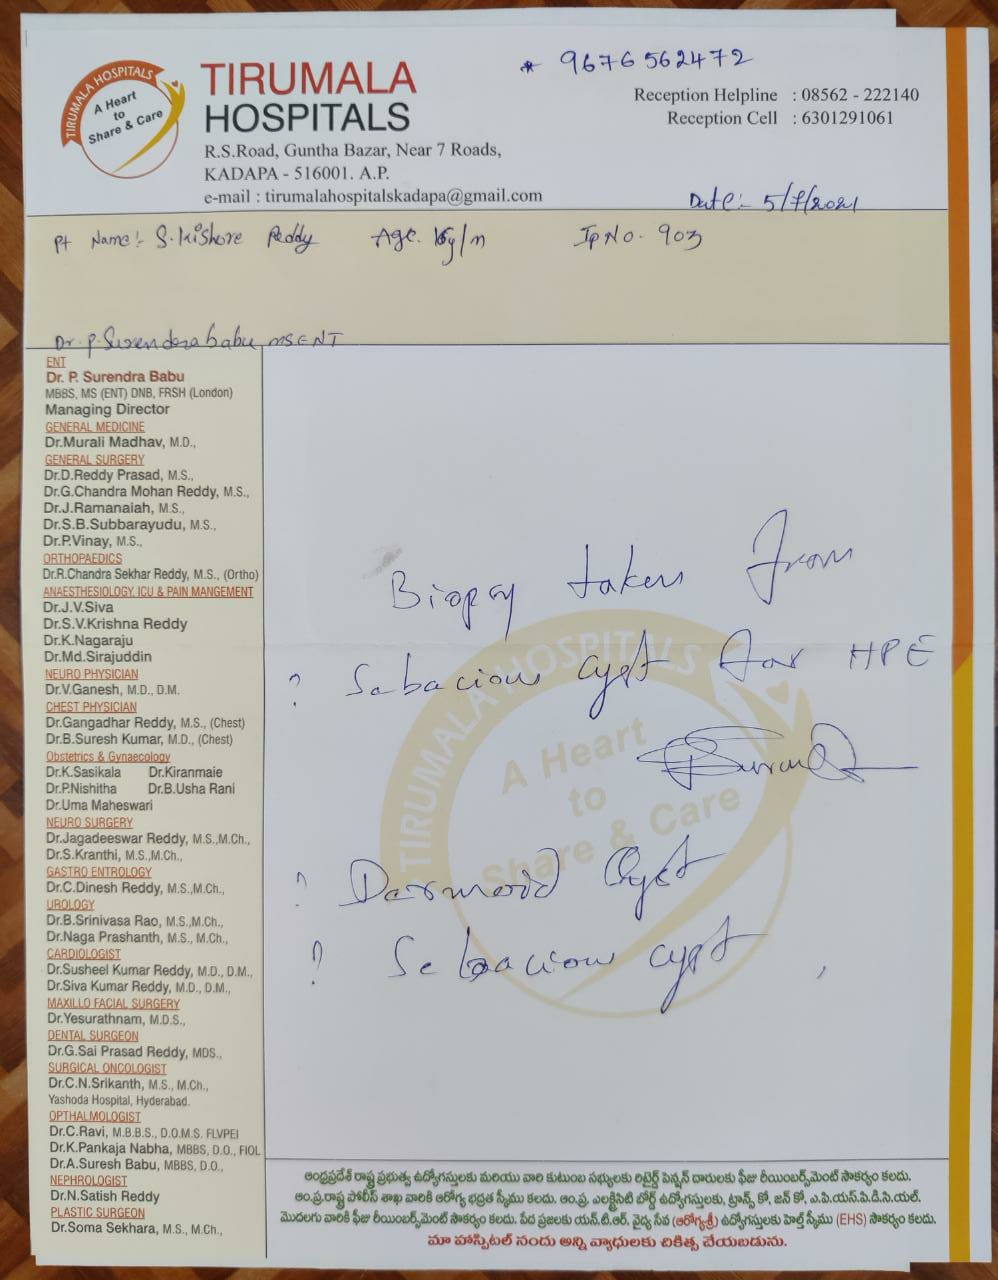 TIRUMALA HOSPITALS
A Heart
to
Share & Care
TIRUMALA
HOSPITALS
R.S.Road, Guntha Bazar, Near 7 Roads,
KADAPA - 516001. A.P.
e-mail : tirumalahospitalskadapa@gmail.com
* 9676562472
Reception Helpline : 08562 - 222140
Reception Cell : 6301291061
Date:- 5/7/2021
Pt Name:- S. Kishore Reddy Age. 16y/m Ip No. 903
Dr. P. Surendera babu, MSENT
ENT
Dr. P. Surendra Babu
MBBS, MS (ENT) DNB, FRSH (London)
Managing Director
GENERAL MEDICINE
Dr.Murali Madhav, M.D.,
GENERAL SURGERY
Dr.D.Reddy Prasad, M.S.,
Dr.G.Chandra Mohan Reddy, M.S.,
Dr.J.Ramanaiah, M.S.,
Dr.S.B.Subbarayudu, M.S.,
Dr.P.Vinay, M.S.,
ORTHOPAEDICS
Dr.R.Chandra Sekhar Reddy, M.S., (Ortho)
ANAESTHESIOLOGY, ICU & PAIN MANGEMENT
Dr.J.V.Siva
Dr.S.V.Krishna Reddy
Dr.K.Nagaraju
Dr.Md.Sirajuddin
NEURO PHYSICIAN
Dr.V.Ganesh, M.D., D.M.
CHEST PHYSICIAN
Dr.Gangadhar Reddy, M.S., (Chest)
Dr.B.Suresh Kumar, M.D., (Chest)
Obstetrics & Gynaecology
Dr.K.Sasikala Dr.Kiranmaie
Dr.P.Nishitha Dr.B.Usha Rani
Dr.Uma Maheswari
NEURO SURGERY
Dr.Jagadeeswar Reddy, M.S.,M.Ch.,
Dr.S.Kranthi, M.S.,M.Ch.,
GASTRO ENTROLOGY
Dr.C.Dinesh Reddy, M.S.,M.Ch.,
UROLOGY
Dr.B.Srinivasa Rao, M.S.,M.Ch.,
Dr.Naga Prashanth, M.S., M.Ch.,
CARDIOLOGIST
Dr.Susheel Kumar Reddy, M.D., D.M.,
Dr.Siva Kumar Reddy, M.D., D.M.,
MAXILLO FACIAL SURGERY
Dr.Yesurathnam, M.D.S.,
DENTAL SURGEON
Dr.G.Sai Prasad Reddy, MDS.,
SURGICAL ONCOLOGIST
Dr.C.N.Srikanth, M.S., M.Ch.,
Yashoda Hospital, Hyderabad.
OPTHALMOLOGIST
Dr.C.Ravi, M.B.B.S., D.O.M.S. FLVPEI
Dr.K.Pankaja Nabha, MBBS, D.O., FIOL
Dr.A.Suresh Babu, MBBS, D.O.,
NEPHROLOGIST
Dr.N.Satish Reddy
PLASTIC SURGEON
Dr.Soma Sekhara, M.S., M.Ch.,
Biopsy taken from
? Sabacious cyst for HPE
? Darmoid Cyst
? Sebacious cyst
TIRUMALA HOSPITALS
A Heart
to
Share & Care
ఆంధ్రప్రదేశ్ రాష్ట్ర ప్రభుత్వ ఉద్యోగస్తులకు మరియు వారి కుటుంబ సభ్యులకు రిటైర్డ్ పెన్షన్ దారులకు ఫీజు రీయింబర్స్‌మెంట్ సౌకర్యం కలదు.
ఆం.ప్ర.రాష్ట్ర పోలీస్ శాఖ వారికి ఆరోగ్య భద్రత స్కీము కలదు. ఆం.ప్ర. ఎలక్ట్రిసిటి బోర్డ్ ఉద్యోగస్తులకు, ట్రాన్స్ కో, జన్ కో, ఎ.పి.యస్.పి.డి.సి.యల్.
మొదలగు వారికి ఫీజు రీయింబర్స్‌మెంట్ సౌకర్యం కలదు. పేద ప్రజలకు యన్.టి.ఆర్. వైద్య సేవ (ఆరోగ్యశ్రీ) ఉద్యోగస్తులకు హెల్త్ స్కీము (EHS) సౌకర్యం కలదు.
మా హాస్పిటల్ నందు అన్ని వ్యాధులకు చికిత్స చేయబడును.